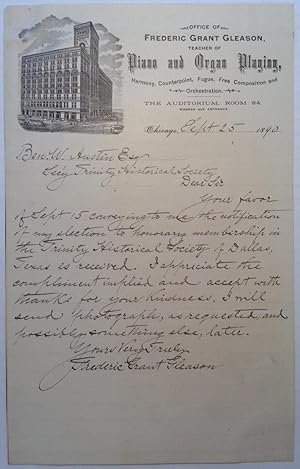 OFFICE OF
FREDERIC GRANT GLEASON,
TEACHER OF
Piano and Organ Playing,
Harmony, Counterpoint, Fugue, Free Composition and
Orchestration.
THE AUDITORIUM, ROOM 84
WABASH AVE. ENTRANCE.
Chicago, Sept 25 1890
Ben. W. Austin Esq
Secy Trinity Historical Society
Dear Sir
Your favor
of Sept 15 conveying to me the notification
of my election to honorary membership in
the Trinity Historical Society of Dallas,
Texas is received. I appreciate the
compliment implied and accept with
thanks for your kindness. I will
send photograph, as requested, and
possibly something else, later.
Yours Very Truly
Frederic Grant Gleason